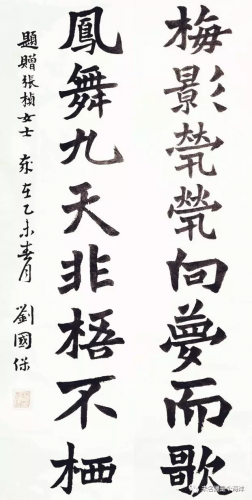 梅影茕茕向梦而歌
鳳舞九天非梧不栖
題贈張楨女士 歲在乙未春月 劉國保